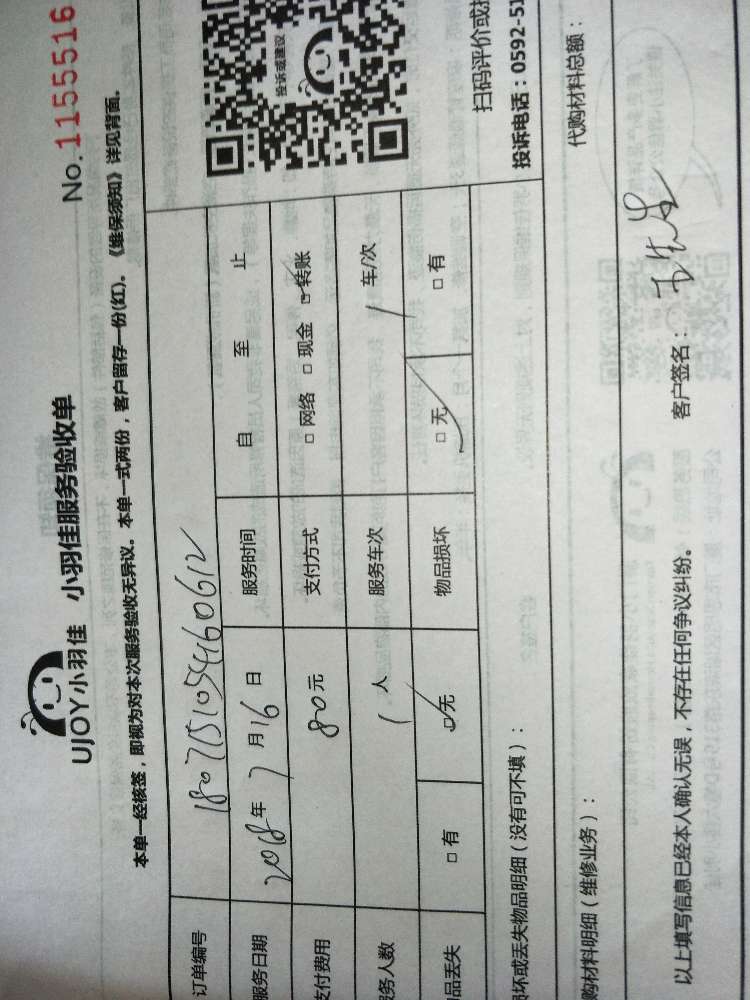 No.1155516
UJOY小羽佳 小羽佳服务验收单
本单一经核签，即视为对本次服务验收无异议。本单一式两份，客户留存一份(红)。《维保须知》详见背面。
订单编号 180715105460612
服务日期 2018年7月16日 服务时间 自 至 止
支付费用 80元 支付方式 □网络 □现金 □转账
务人数 1人 服务车次 1车/次
品丢失 □有 □无 物品损坏 □无 □有
投诉或建议
扫码评价或
投诉电话：0592-51
坏或丢失物品明细（没有可不填）：
购材料明细（维修业务）： 代购材料总额：
以上填写信息已经本人确认无误，不存在任何争议纠纷。 客户签名：王先生